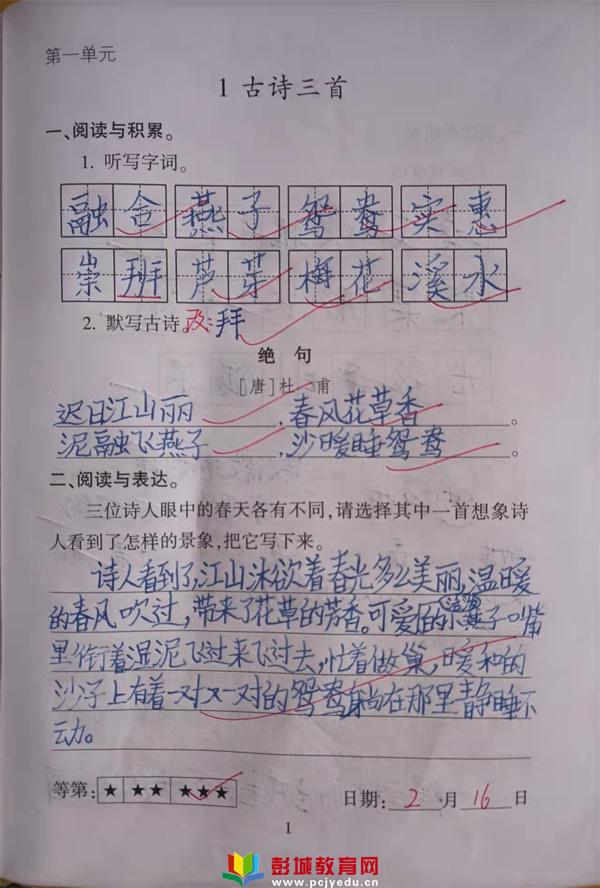 第一单元
1 古诗三首
一、阅读与积累。
1. 听写字词。
融合 燕子 鸳鸯 实惠
崇拜 芦芽 梅花 溪水
2. 默写古诗。改:拜
绝 句
[唐]杜 甫
迟日江山丽,春风花草香。
泥融飞燕子,沙暖睡鸳鸯。
二、阅读与表达。
三位诗人眼中的春天各有不同,请选择其中一首想象诗
人看到了怎样的景象,把它写下来。
诗人看到了,江山沐欲着春光多么美丽,温暖
的春风吹过,带来了花草的芳香。可爱的小燕子嘴
里衔着湿泥飞过来飞过去,忙着做巢,暖和的
沙子上有着一对又一对的鸳鸯躺在那里静睡不
动。
等第: ★ ★★ ★★★ 日期: 2 月 16 日
1
彭城教育网
www.pcjyedu.cn